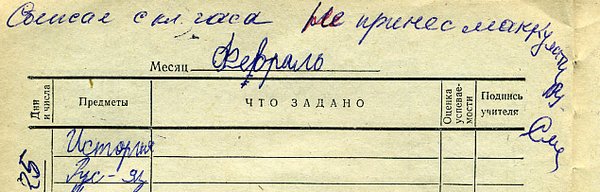 Сбежал с кл. часа Не принес макулатуру
Месяц Февраль
Дни и числа Предметы ЧТО ЗАДАНО Оценка успеваемости Подпись учителя
25 История
Рус-яз